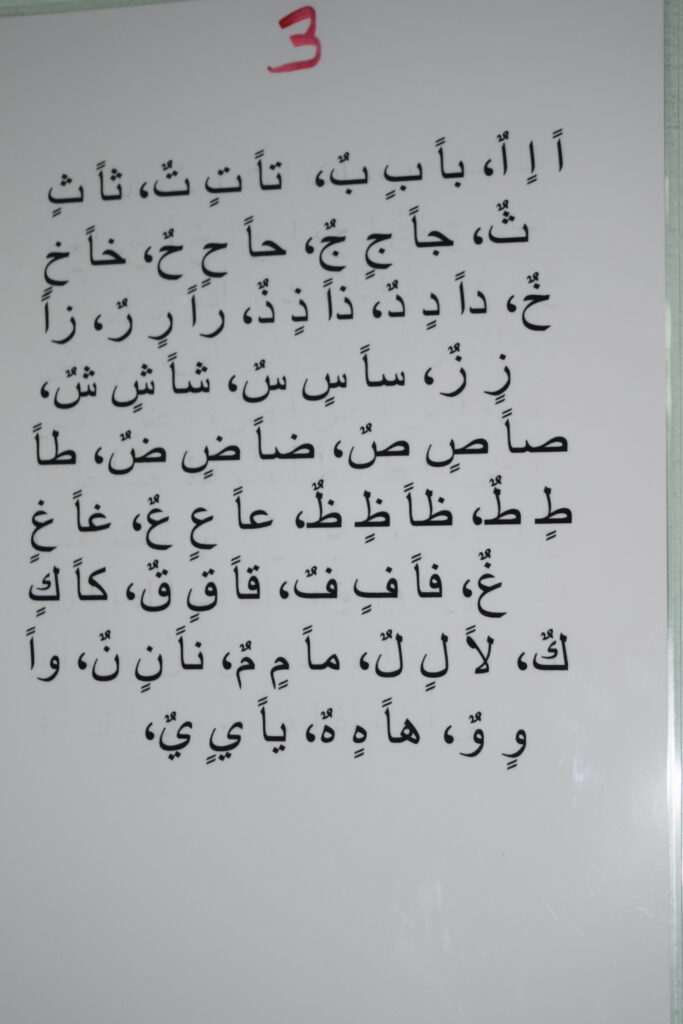 3
اً اٍ اٌ، باً بٍ بٌ، تاً تٍ تٌ، ثاً ثٍ
ثٌ، جاً جٍ جٌ، حاً حٍ حٌ، خاً خٍ
خٌ، داً دٍ دٌ، ذاً ذٍ ذٌ، راً رٍ رٌ، زاً
زٍ زٌ، ساً سٍ سٌ، شاً شٍ شٌ،
صاً صٍ صٌ، ضاً ضٍ ضٌ، طاً
طٍ طٌ، ظاً ظٍ ظٌ، عاً عٍ عٌ، غاً غٍ
غٌ، فاً فٍ فٌ، قاً قٍ قٌ، كاً كٍ
كٌ، لاً لٍ لٌ، ماً مٍ مٌ، ناً نٍ نٌ، واً
وٍ وٌ، هاً هٍ هٌ، ياً يٍ يٌ،